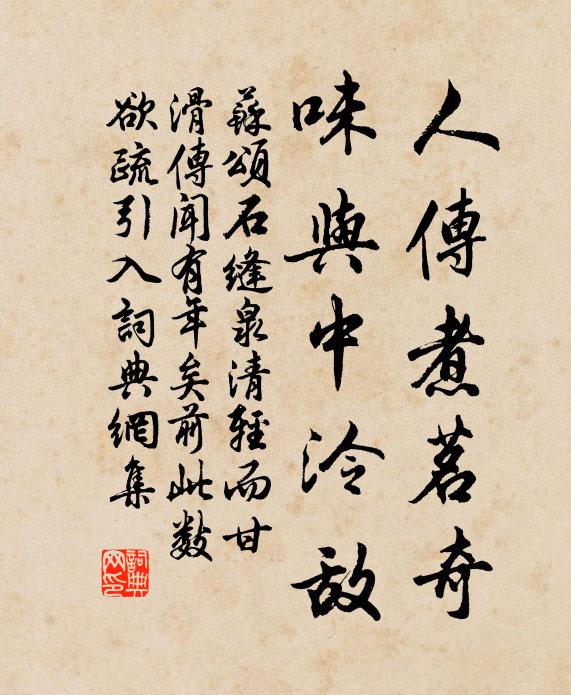 人傳煮茗奇
味與中泠敵
蘇頌石縫泉清輕而甘
滑傳聞有年矣前此數
欲疏引入詞典網集
詞典网印